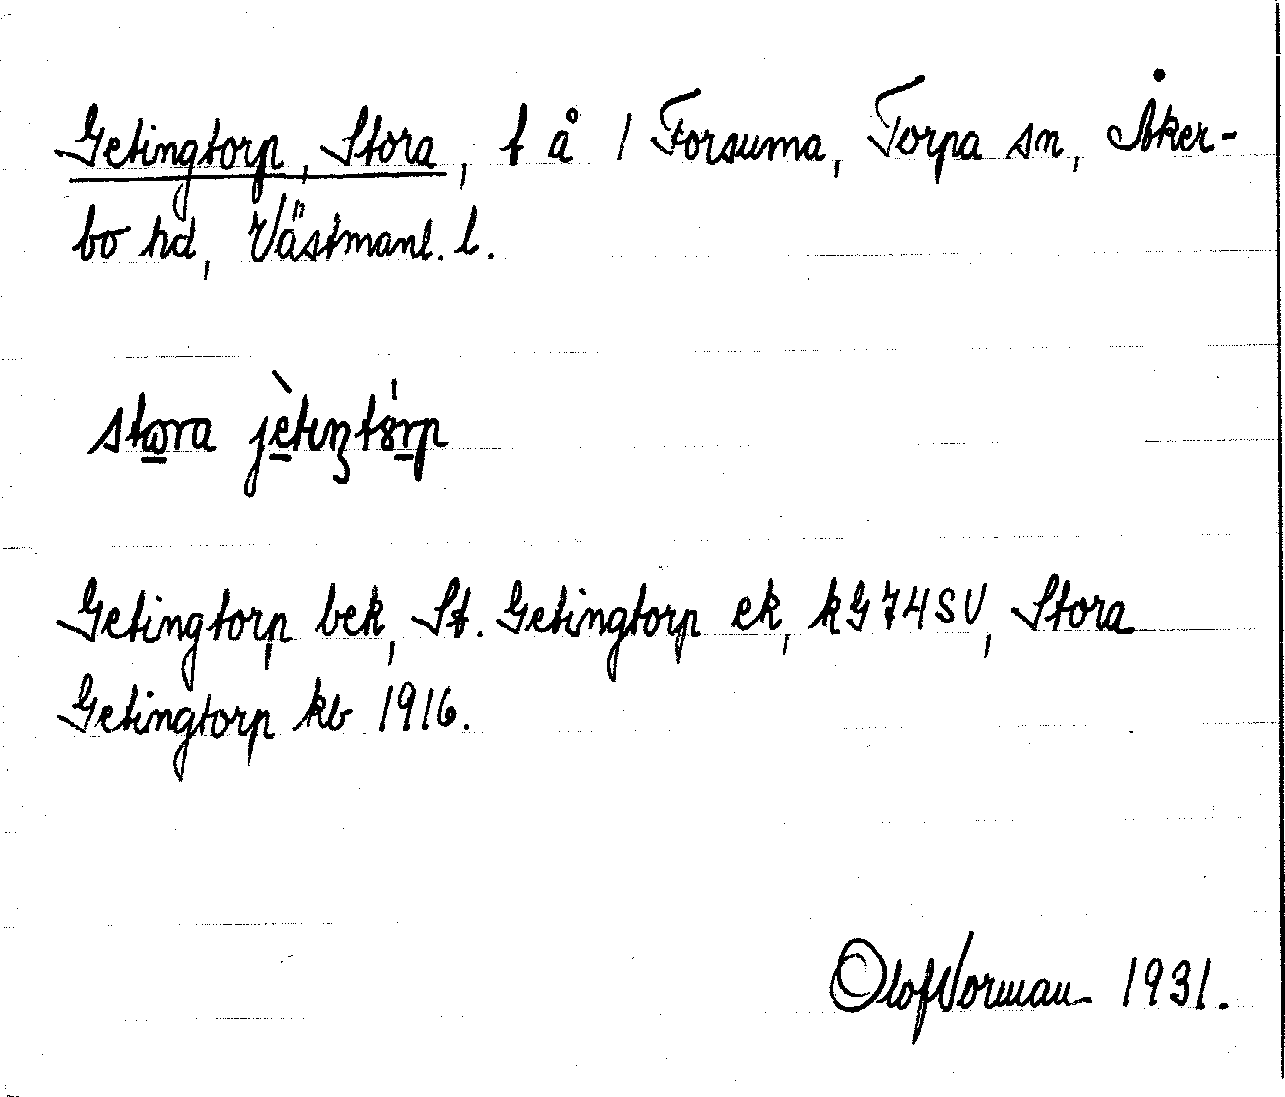 Getingtorp, Stora, t å 1 Forsuma, Torpa sn, Åker-
bo hd, Västmanl. l.
stora jètɩŋtórp
Getingtorp bek, St. Getingtorp ek, kG 74SV, Stora
Getingtorp kb 1916.
Olof Norman 1931.